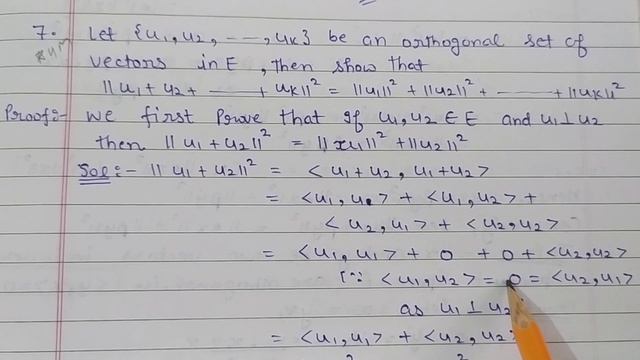 7. Let {u1, u2, ---, uk} be an orthogonal set of
vectors in E, then show that
||u1 + u2 + ------ + uk||² = ||u1||² + ||u2||² + ------ + ||uk||²
Proof:- We first prove that if u1, u2 ∈ E and u1 ⊥ u2
then ||u1 + u2||² = ||x1||² + ||u2||²
Sol:- ||u1 + u2||² = <u1 + u2, u1 + u2>
= <u1, u1> + <u1, u2> +
<u2, u1> + <u2, u2>
= <u1, u1> + 0 + 0 + <u2, u2>
[∵ <u1, u2> = 0 = <u2, u1>
as u1 ⊥ u2
= <u1, u1> + <u2, u2>